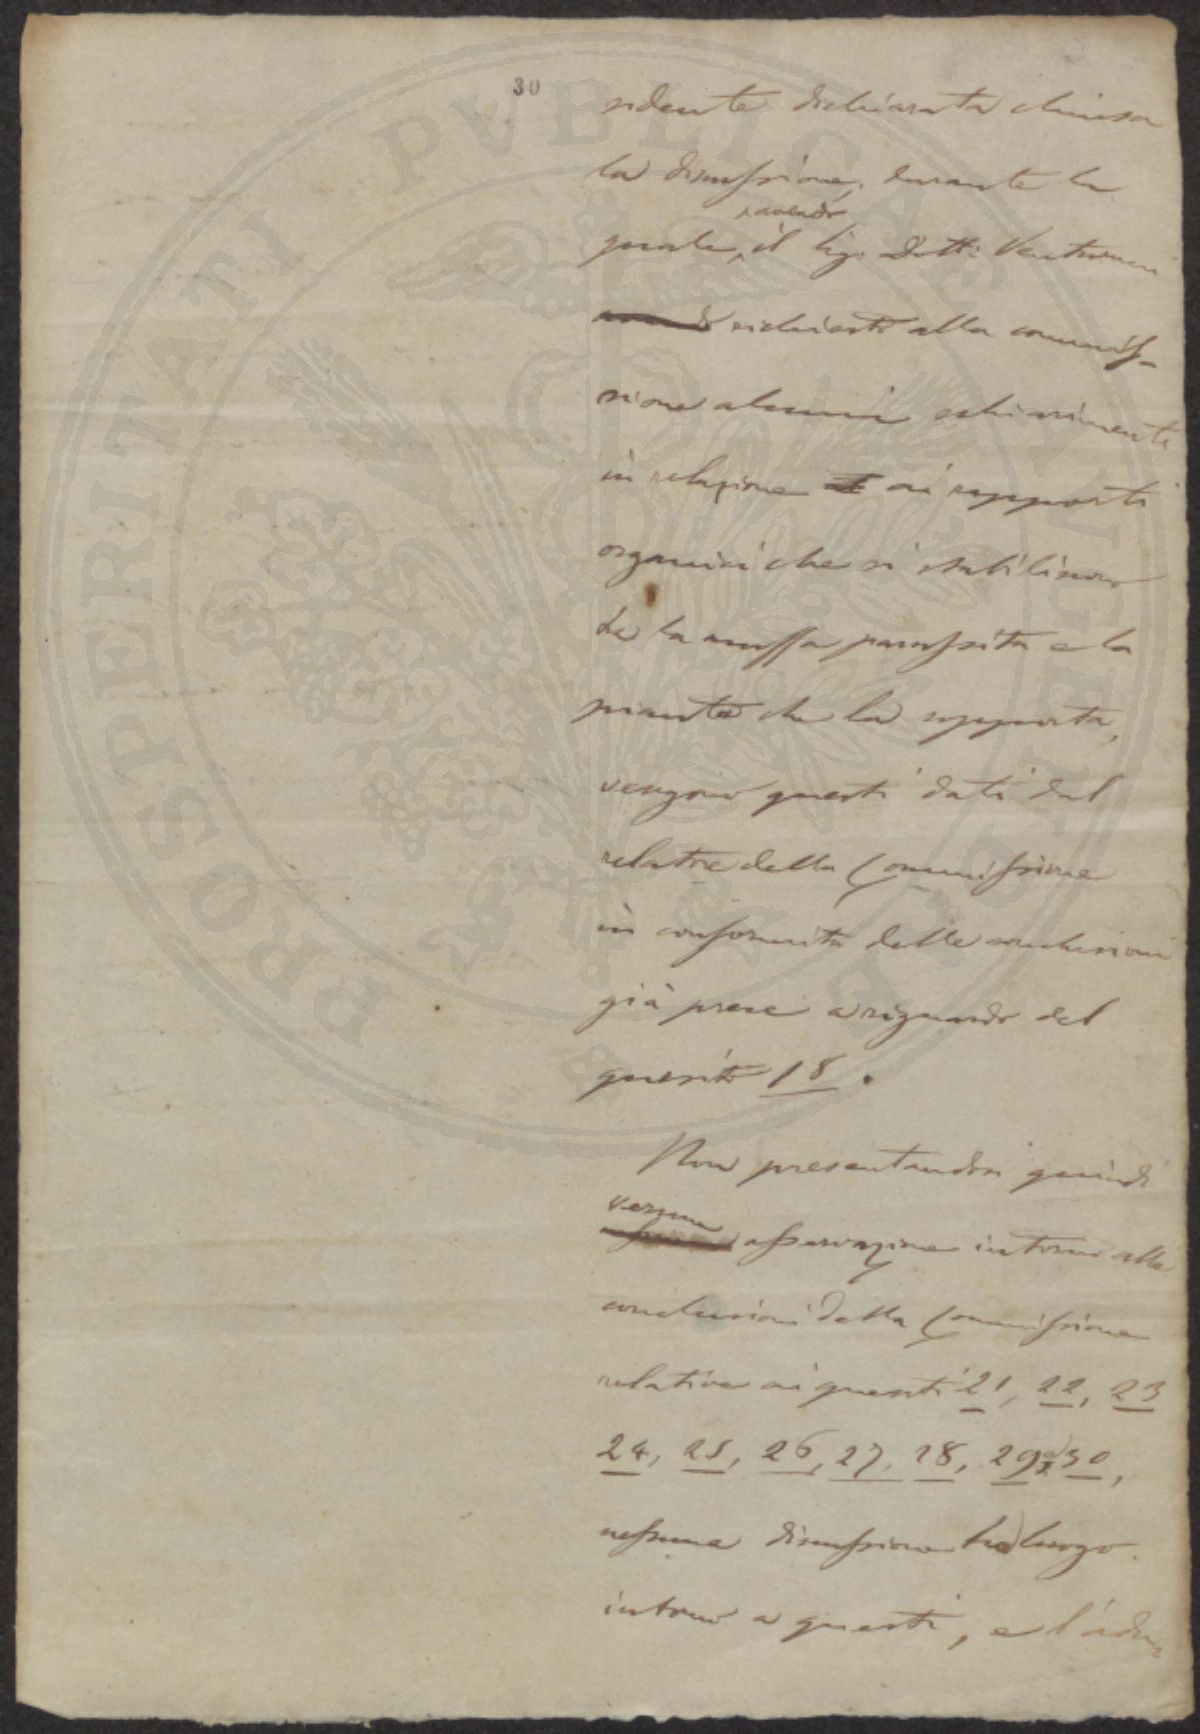 30
sidente dichiarata chiusa
la discussione, durante la
avendo
quale, il Sig. Dott: Venturini
richiesto alla commis-
sione alcuni schiarimenti
in relazione ai rapporti
organici che si stabiliscono
tra la muffa parassita e la
pianta che la sopporta,
vengono questi dati dal
relatore della Commissione
in conformità delle conclusioni
già prese a riguardo del
quesito 18.
Non presentandosi quindi
veruna
osservazione intorno alle
conclusioni della Commissione
relative ai quesiti 21, 22, 23
24, 25, 26, 27, 28, 29 e 30,
nessuna discussione ha luogo
intorno a questi, e l'adu
PROSPERITATI PVBLICAE AVGENDAE